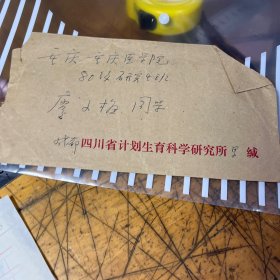 重庆 重庆医学院
80级研究生班
廖文梅 同学
成都四川省计划生育科学研究所 缄